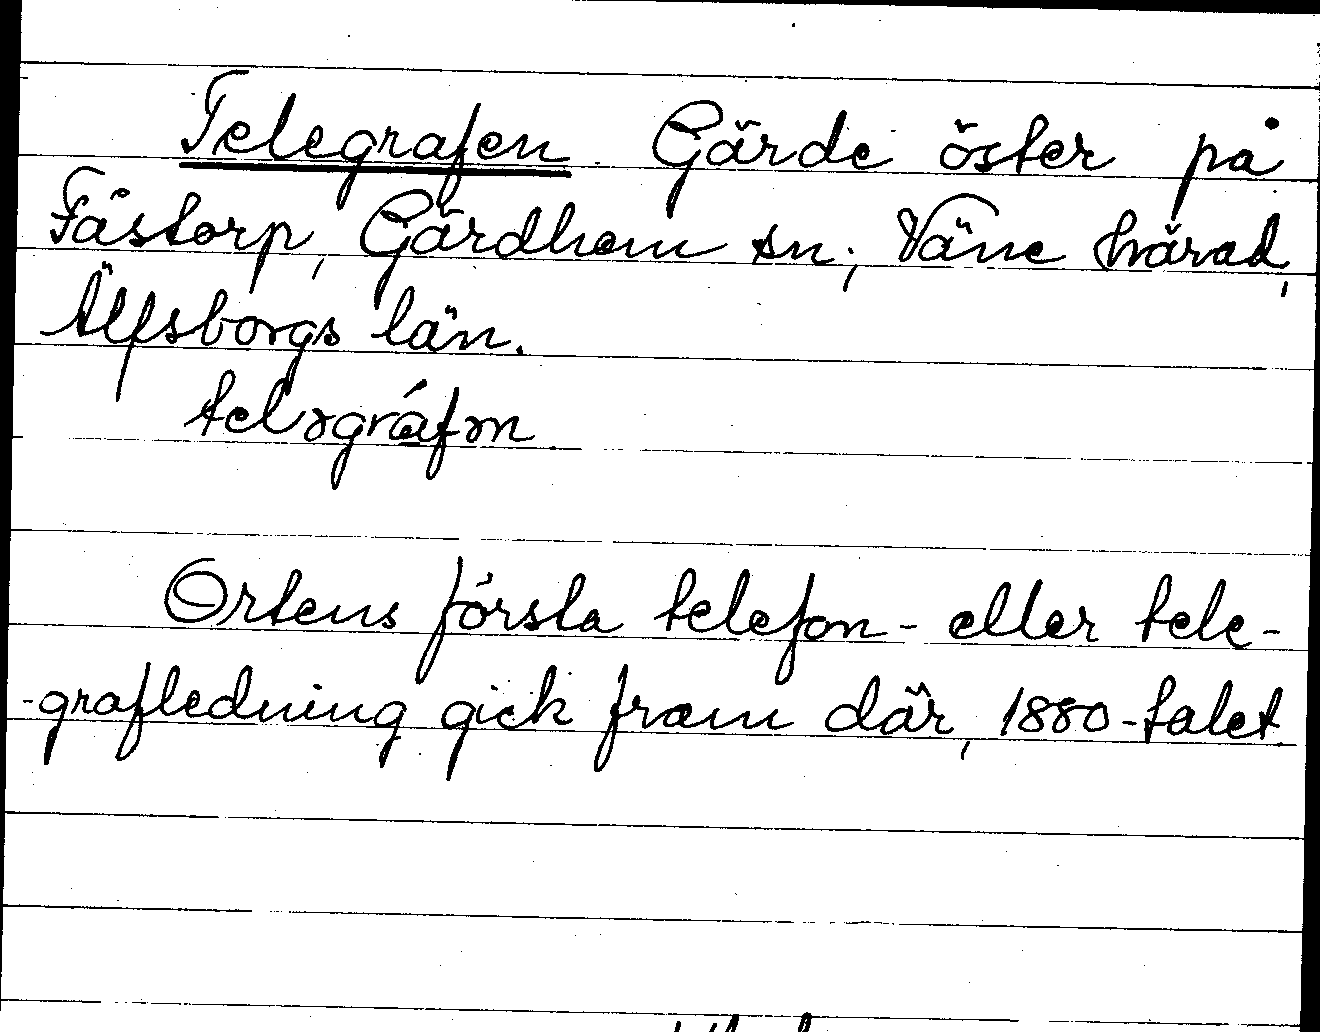 Telegrafen Gärde öster på
Fåstorp, Gärdhem sn; Väne härad,
Älfsborgs län.
teləgráfən
Ortens första telefon- eller tele-
-grafledning gick fram där, 1880-talet